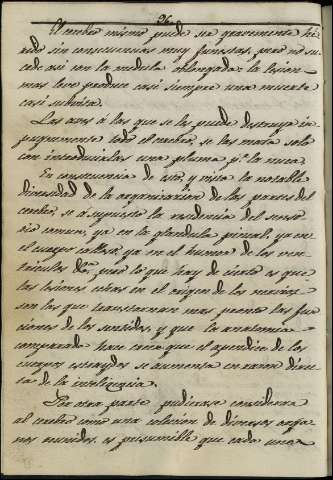 96.
El cerebro mismo puede ser gravemente he-
rido sin consecuencias muy funestas, pero no su-
cede asi con la medula oblongada: la lesion
mas leve produce casi siempre una muerte
casi subita.
Las aves á las que se les puede destruir im-
pugnemente todo el cerebro, se las mata solo
con introducirlas una pluma pr. la nuca.
En consecuencia de esto, y vista la notable
diversidad de la organizacion de las partes del
cerebro, se á supuesto la residencia del senso-
rio comun, ya en la glandula pineal, ya en
el cuerpo calloso, ya en el humor de los ven-
triculos &a., pero lo que hay de cierto es que
las lesiones echas en el origen de los nervios
son las que trastornan mas pronto las fun-
ciones de los sentidos, y que la anatomia
comparada hace como que el apendice de los
cuerpos estryados se aumenta en razon direc-
ta de la inteligencia.
Por otra parte pudierase considerar
al cerebro como una coleccion de diversos orga-
nos reunidos, es presumible que cada uno